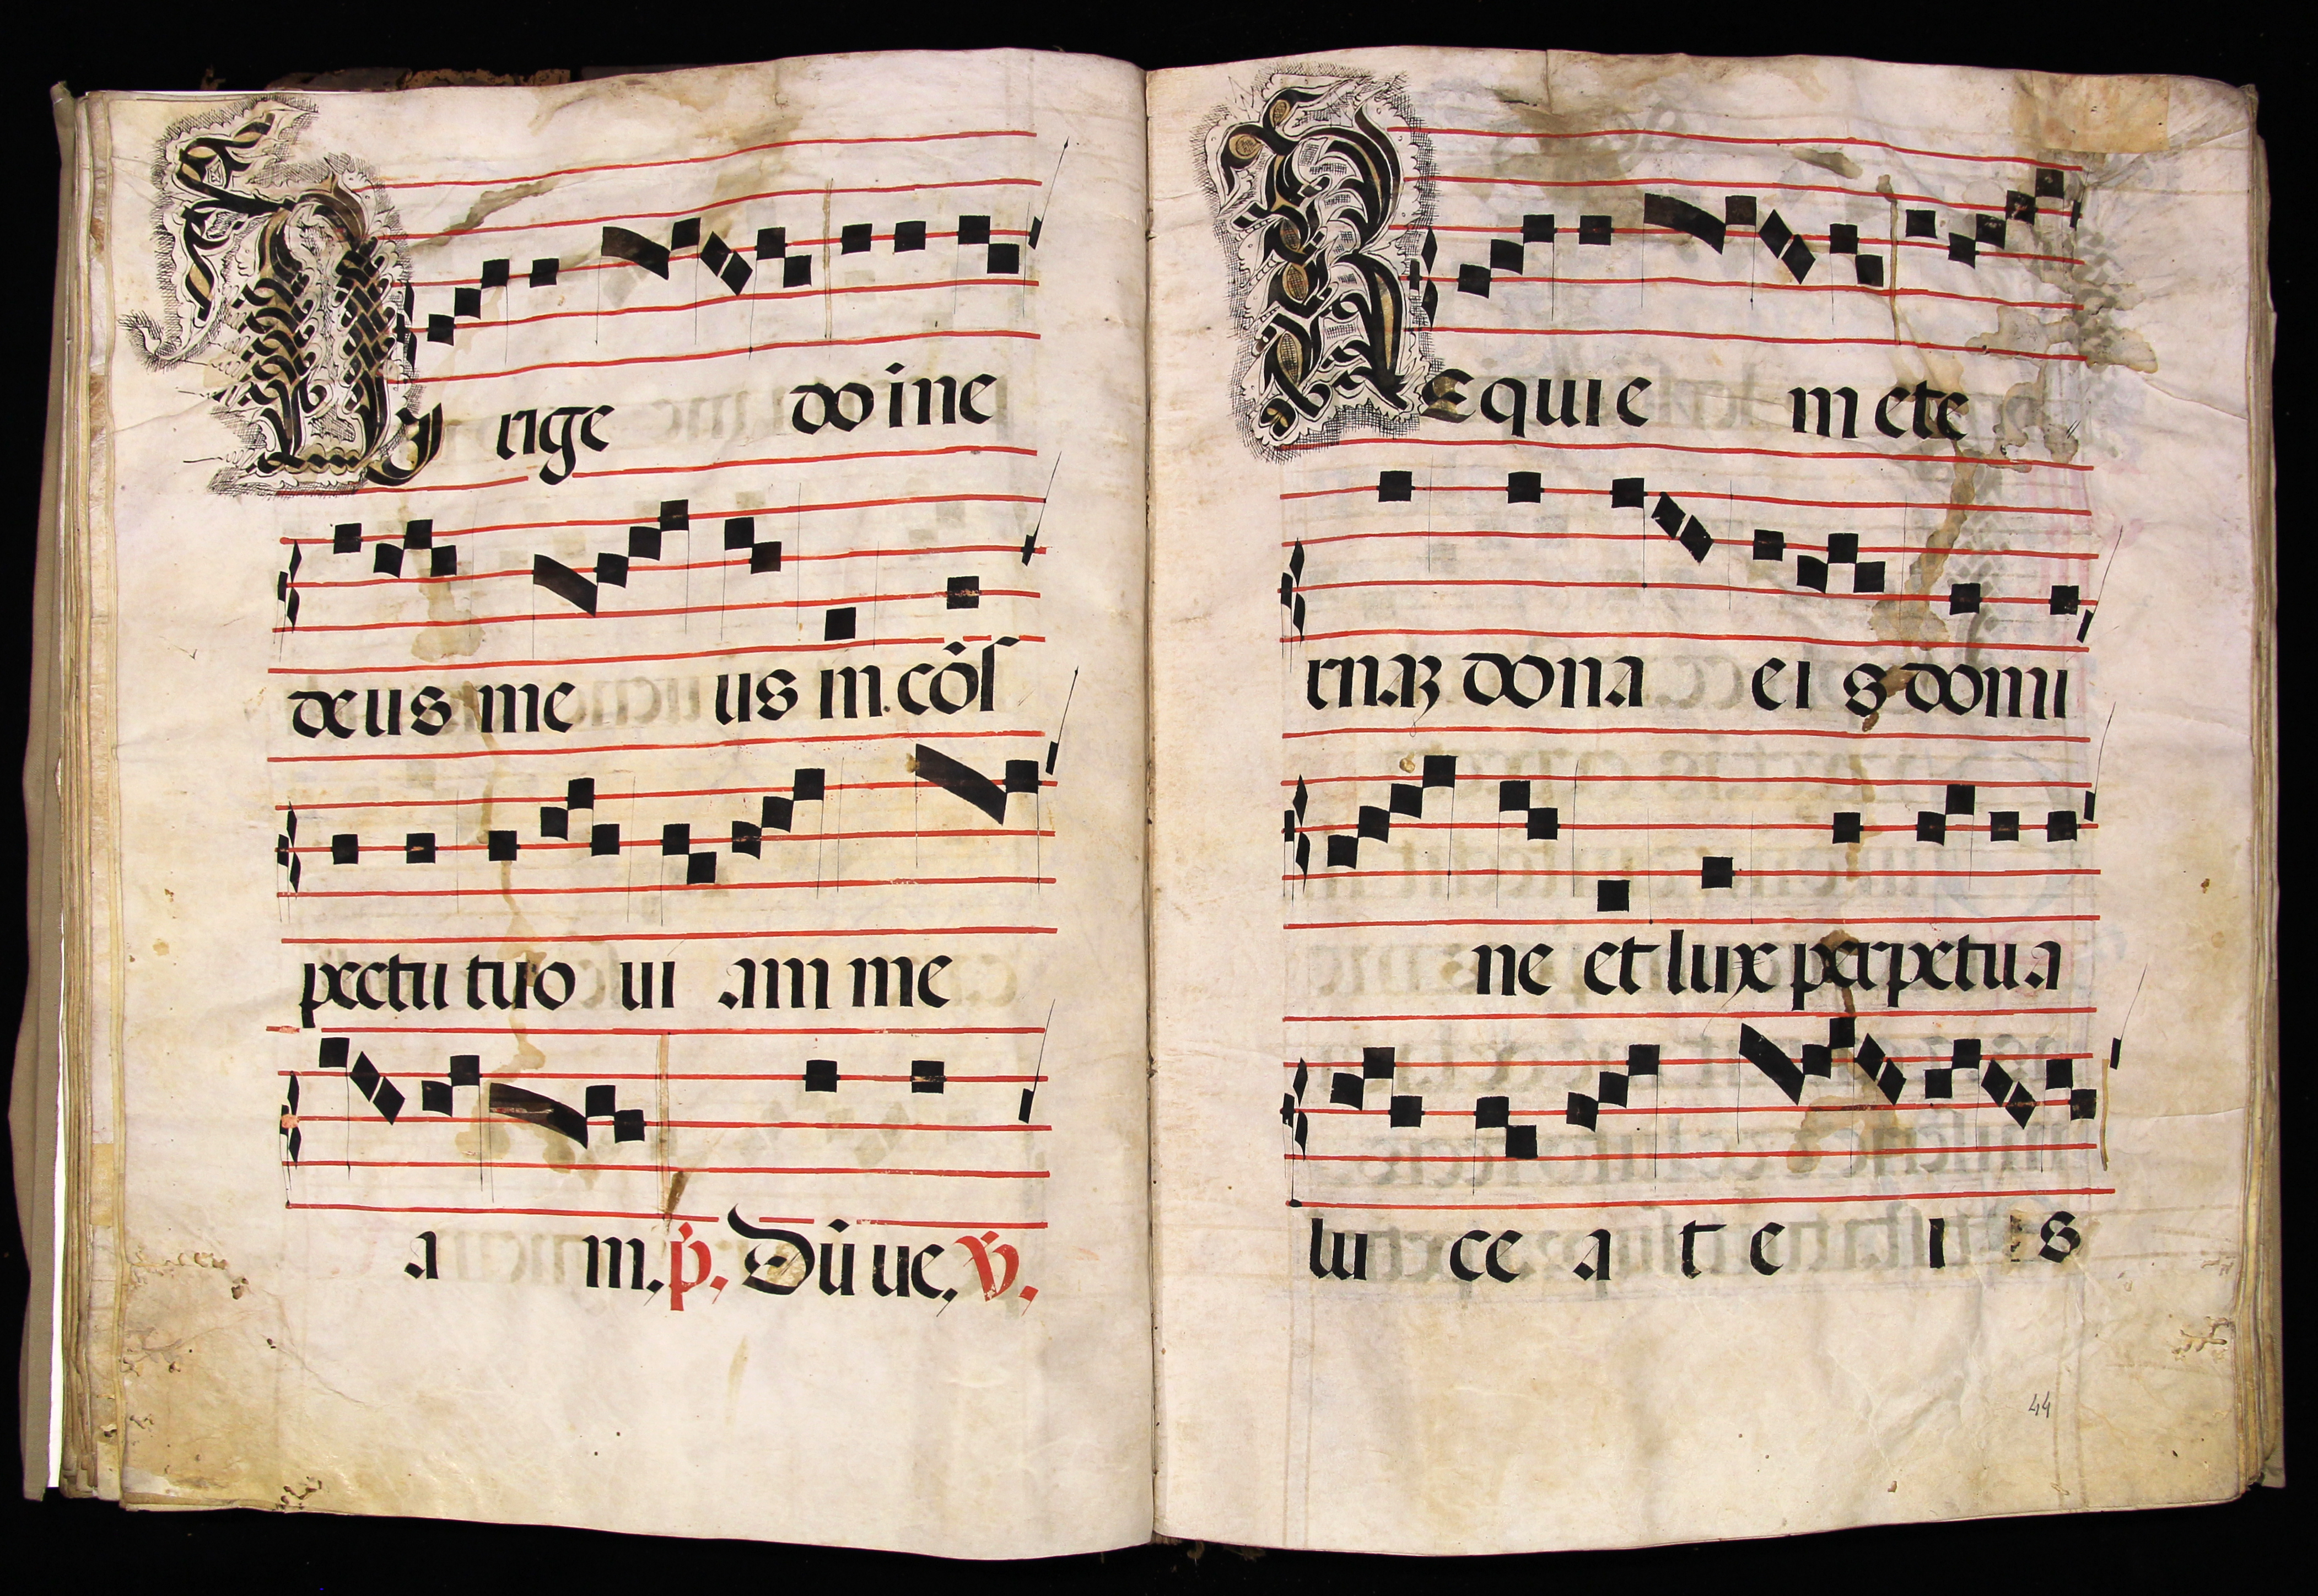 Dirige domine
deus meus in cõs
pectu tuo uiam me
am. p̃. Dñ ue. ℣.
Requiem ete
rnaꝫ dona eis domi
ne et lux perpetua
luceat eis
44